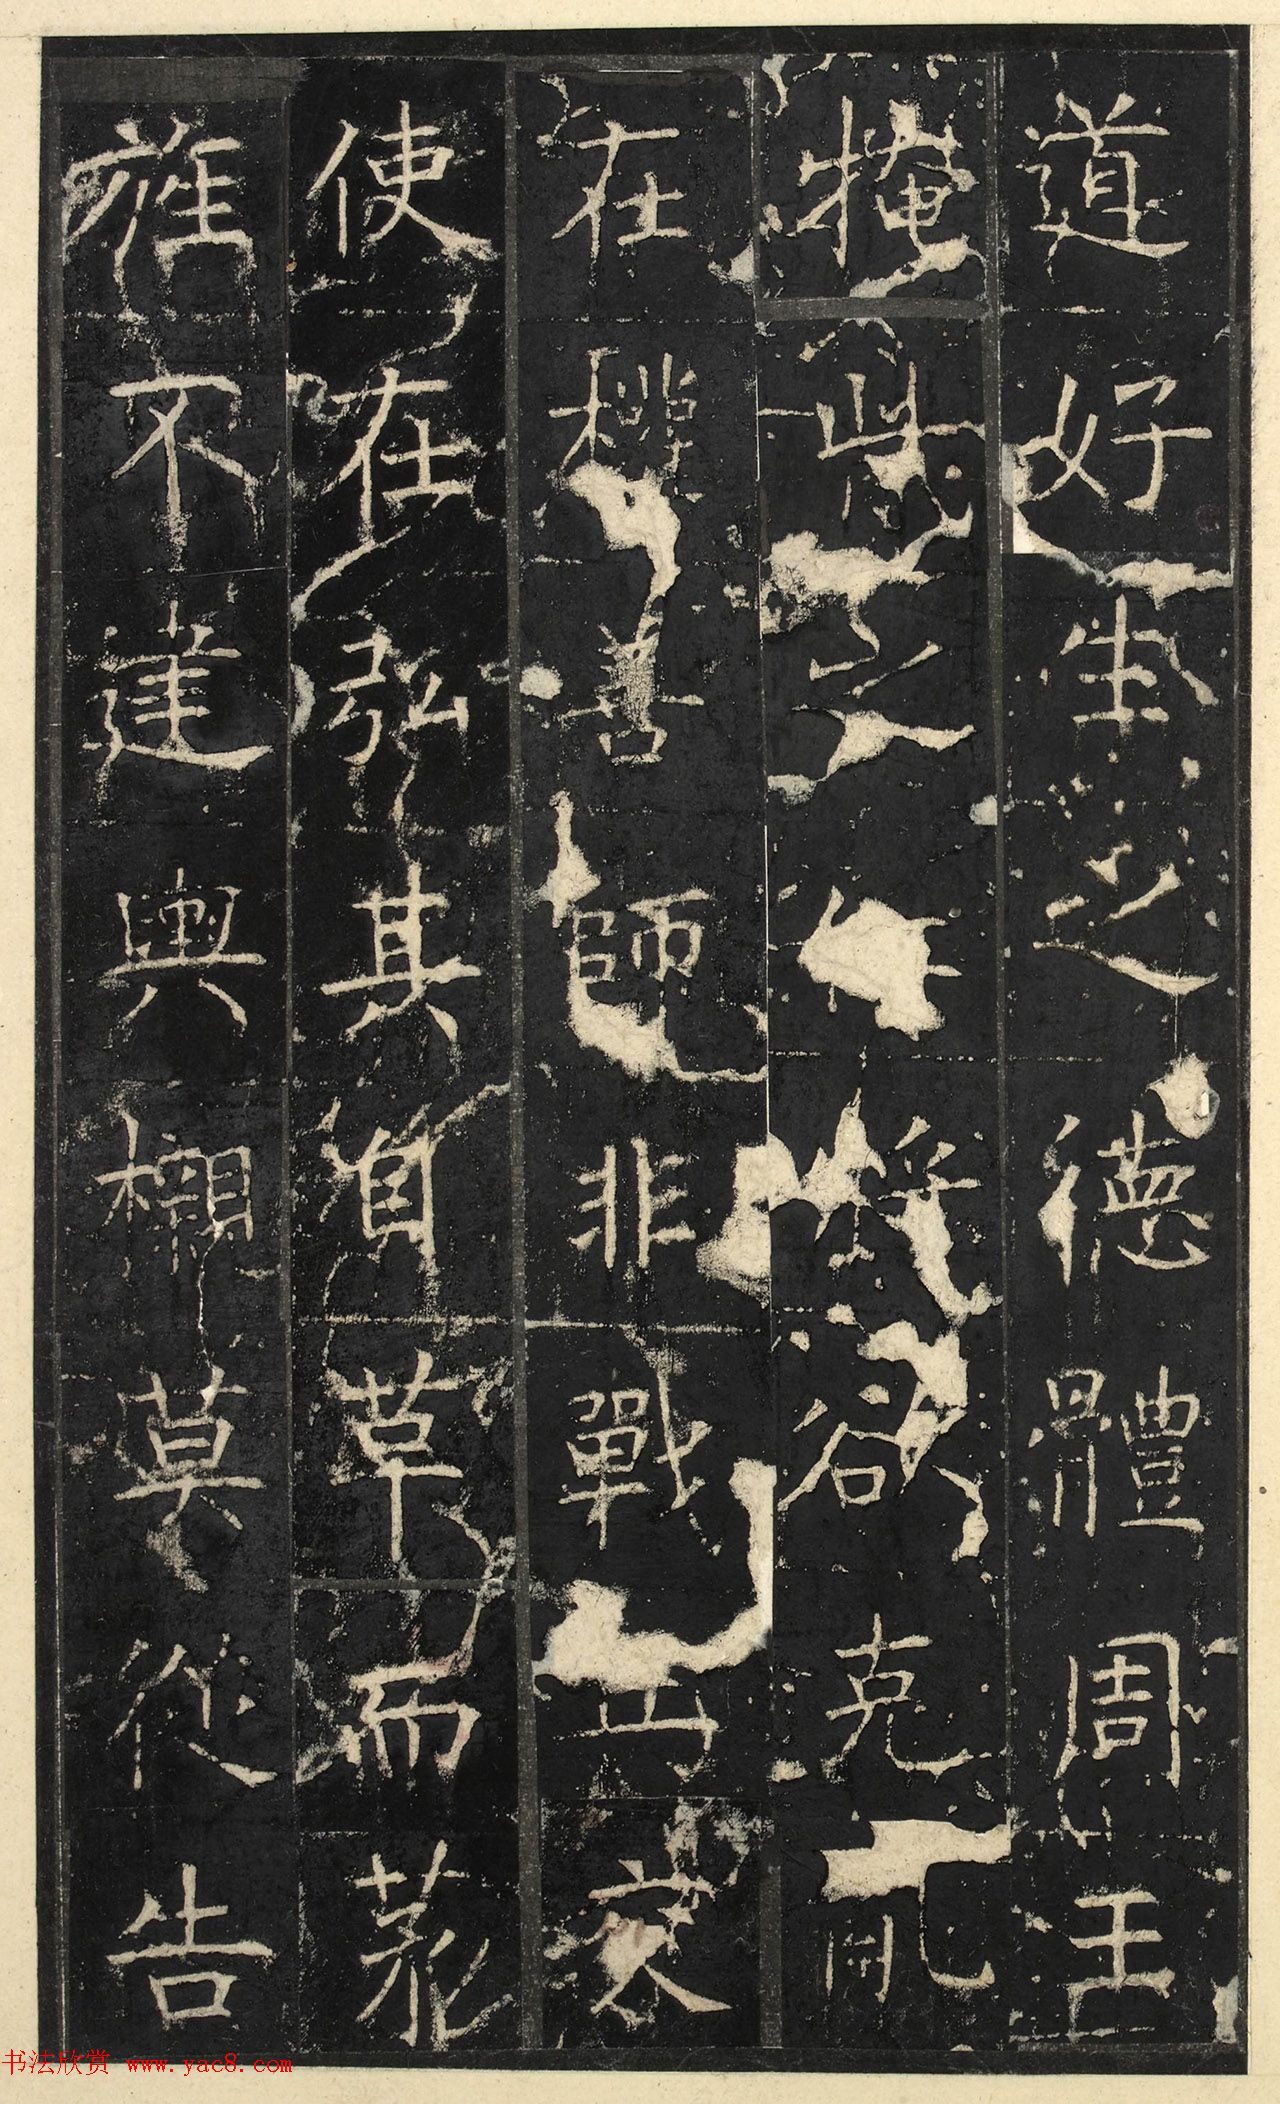 道好生之德體周王
掩胔之仁將欲克亂
在機善師非戰
使在弘其草而
旌不建輿櫬莫從告
书法欣赏 www.yac8.com